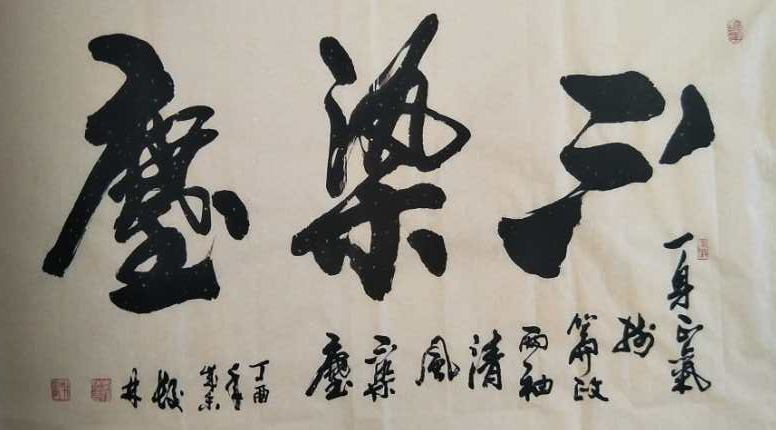 不染塵
一身正氣
廉政
兩袖
清
風
不染
塵
丁酉
年
林